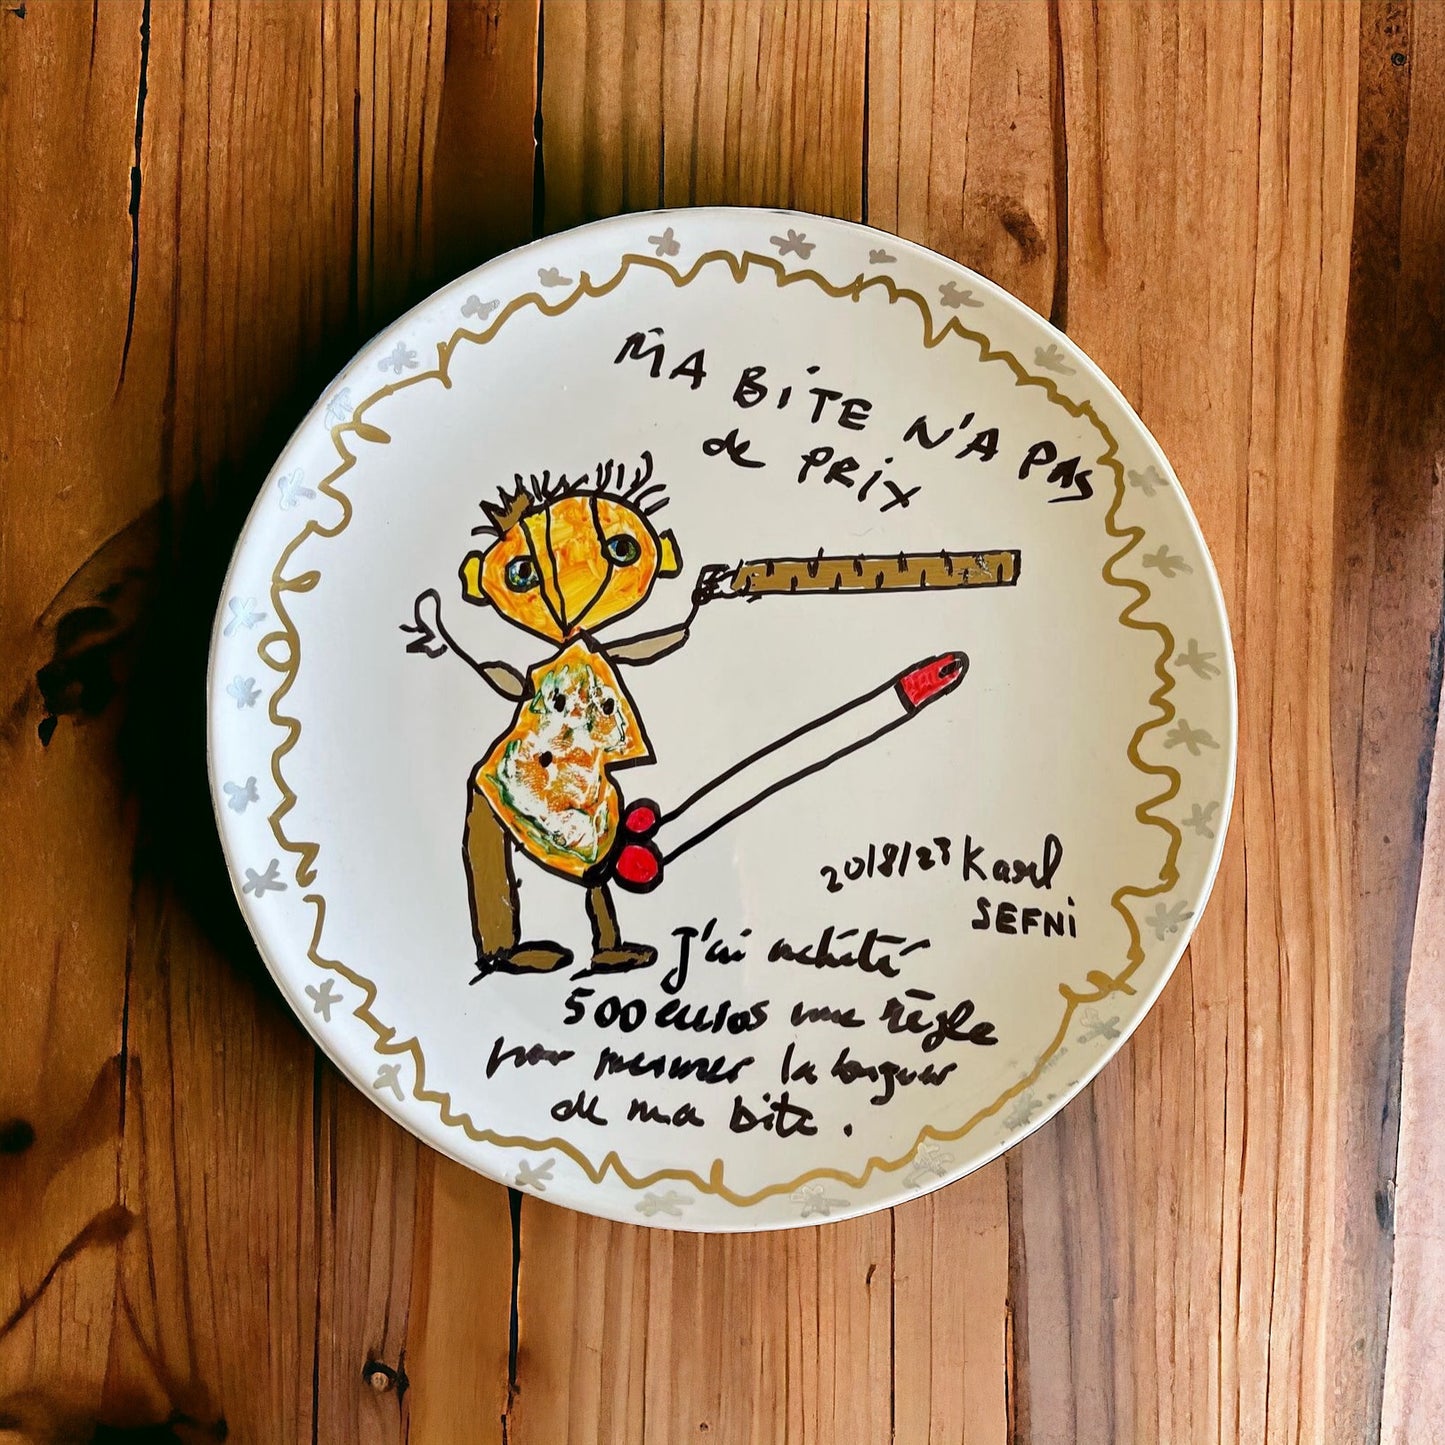 MA BITE N'A PAS
de PRIX
20/8/23 Karl
SEFNI
J'ai acheté
500 euros une Règle
pour mesurer la longueur
de ma bite.